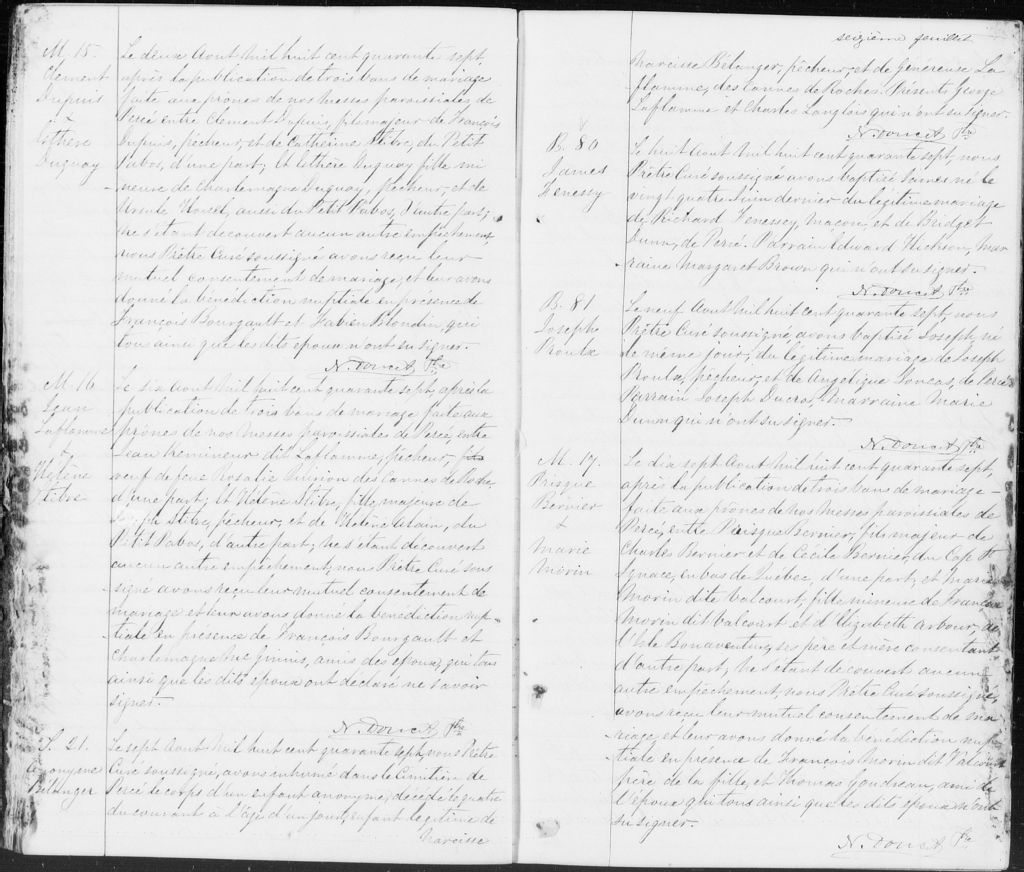 M. 15.
Clément
Dupuis
&
Lothère
Duguay
Le deux Aout Mil huit cent quarante sept
après la publication de trois bans de mariage
faite aux prônes de nos Messes paroissiales de
Percé entre Clement Dupuis, fils majeur de François
Dupuis, pêcheur, et de Catherine Stibre, du Petit
Pabos, d'une part, Et Lothère Duguay fille mi
neure de Charlemagne Duguay, pêcheur, et de
Ursule Horsel, aussi du Petit Pabos, d'autre part;
ne s'étant découvert aucun autre empêchement,
nous Prêtre Curé soussigné avons reçu leur
mutuel consentement de mariage, et leur avons
donné la bénédiction nuptiale en présence de
François Bourgault et Fabien Blondin, qui
tous ainsi que les dits époux n'ont su signer.
N. Doucet, Ptre
M. 16.
Jean
Laflamme
&
Helène
Stibre
Le six Aout Mil huit cent quarante sept, après la
publication de trois bans de mariage faite aux
prônes de nos Messes paroissiales de Percé, entre
Jean Kemineur dit Laflamme, pêcheur,
veuf de feue Rosalie Quirion des Cannes de Roche,
d'une part, Et Helène Stibre, fille majeure de
Joseph Stibre, pêcheur, et de Helène Alain, du
Petit Pabos, d'autre part; ne s'étant découvert
aucun autre empêchement, nous Prêtre Curé sous
signé avons reçu leur mutuel consentement de
mariage et leur avons donné la bénédiction nup-
tiale en présence de François Bourgault et
Charlemagne Mc Ginnis, amis des époux, qui tous
ainsi que les dits époux ont déclaré ne savoir
signer.
N. Doucet, Ptre
S. 21.
Anonyme
Belanger
Le sept Aout Mil huit cent quarante sept, nous Prêtre
Curé soussigné, avons inhumé dans le Cimitière de
Percé le corps d'un enfant anonyme, décédé le quatre
du courant à l'âge d'un jour, enfant legitime de
Narcisse
seizième feuillet
Narcisse Bélanger, pêcheur, et de Généreuse La
flamme, des Cannes de Roches. Présents George
Laflamme et Charles Langlois qui n'ont su signer.
N. Doucet, Ptre
B. 80
James
Fenessy
Le huit Aout Mil huit cent quarante sept, nous
Prêtre Curé soussigné avons baptisé James né le
vingt quatre Juin dernier du légitime mariage
de Richard Fenessey, maçon, et de Bridget
Dunn, de Percé. Parrain Edward Hickson, Mar
raine Margaret Brown qui n'ont su signer.
N. Doucet, Ptre
B. 81
Joseph
Proulx
Le neuf Aout Mil huit cent quarante sept, nous
Prêtre Curé soussigné, avons baptisé Joseph, né
le même jour, du légitime mariage de Joseph
Proulx, pêcheur, et de Angelique Joncas, de Percé
Parrain Joseph Ducros, Marraine Marie
Dunn qui n'ont su signer.
N. Doucet, Ptre
M. 17.
Prisque
Bernier
&
Marie
Morin
Le dix sept Aout Mil huit cent quarante sept,
après la publication de trois bans de mariage
faite aux prones de nos Messes paroissiales de
Percé, entre Prisque Bernier, fils majeur de
Charles Bernier et de Cécile Bernier, du Cap St
Ignace, en bas de Québec, d'une part, et Marie
Morin dite Valcourt, fille mineure de François
Morin dit Valcourt et d'Elizabeth Arbour, de
l'Isle Bonaventure, ses père et mère consentant
d'autre part, ne s'étant découvert aucun
autre empêchement, nous Prêtre Curé soussigné,
avons reçu leur mutuel consentement de ma
riage, et leur avons donné la bénédiction nup
tiale en présence de François Morin dit Valcourt
père de la fille, et Thomas Goudreau, ami de
l'époux qui tous ainsi que les dits époux n'ont
su signer.
N. Doucet, Ptre